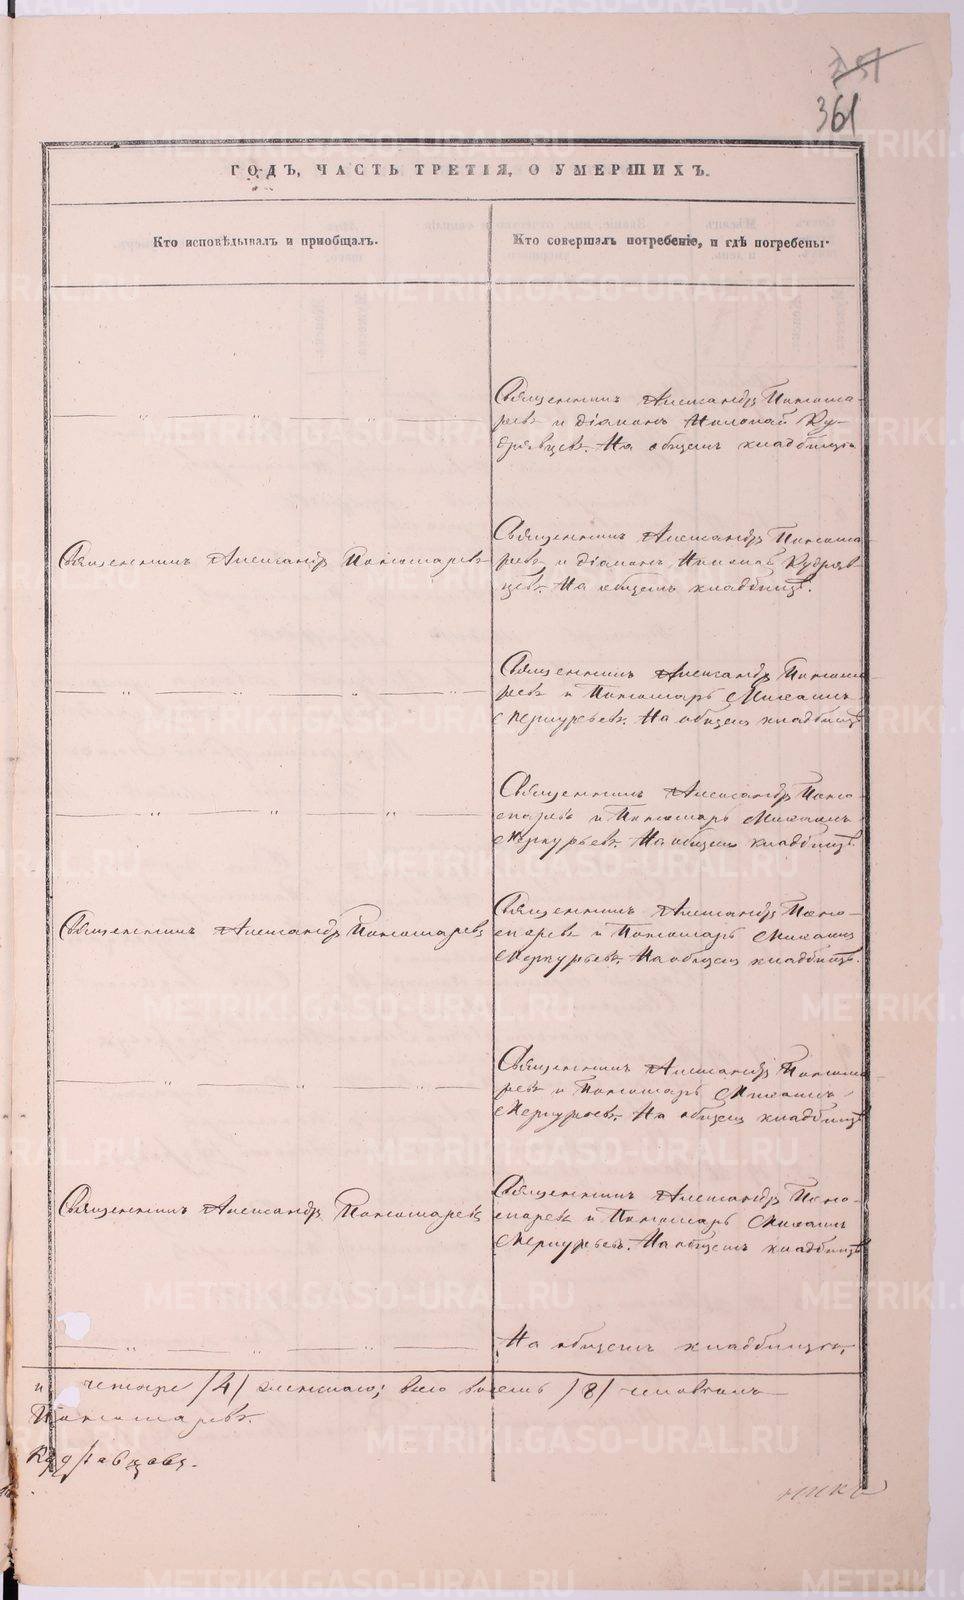 361
ГОДЪ, ЧАСТЬ ТРЕТІЯ, О УМЕРШИХЪ.
Кто исповѣдывалъ и пріобщалъ.
Кто совершалъ погребеніе, и гдѣ погребены.
Священникъ Александръ Понома-
ревъ и діаконъ Николай Ку-
дрявцевъ. На общемъ кладбищѣ
Священникъ Александръ Пономаревъ
Священникъ Александръ Понома-
ревъ и діаконъ Николай Кудряв
цевъ. На общемъ кладбищѣ.
Священникъ Александръ Понома-
ревъ и Пономарь Михаилъ
Меркурьевъ. На общемъ кладбищѣ
Священникъ Александръ Поно-
маревъ и Пономарь Михаилъ
Меркурьевъ. На общемъ кладбищѣ.
Священникъ Александръ Пономаревъ
Священникъ Александръ Поно-
маревъ и Пономарь Михаилъ
Меркурьевъ. На общемъ кладбищѣ.
Священникъ Александръ Понома-
ревъ и Пономарь Михаилъ
Меркурьевъ. На общемъ кладбищѣ
Священникъ Александръ Пономаревъ
Священникъ Александръ Поно-
маревъ и Пономарь Михаилъ
Меркурьевъ. На общемъ кладбищѣ
На общемъ кладбищѣ.
и четыре /4/ женскаго; всего восемь /8/ человѣкъ
Пономаревъ.
Кудрявцевъ.
METRIKI.GASO-URAL.RU